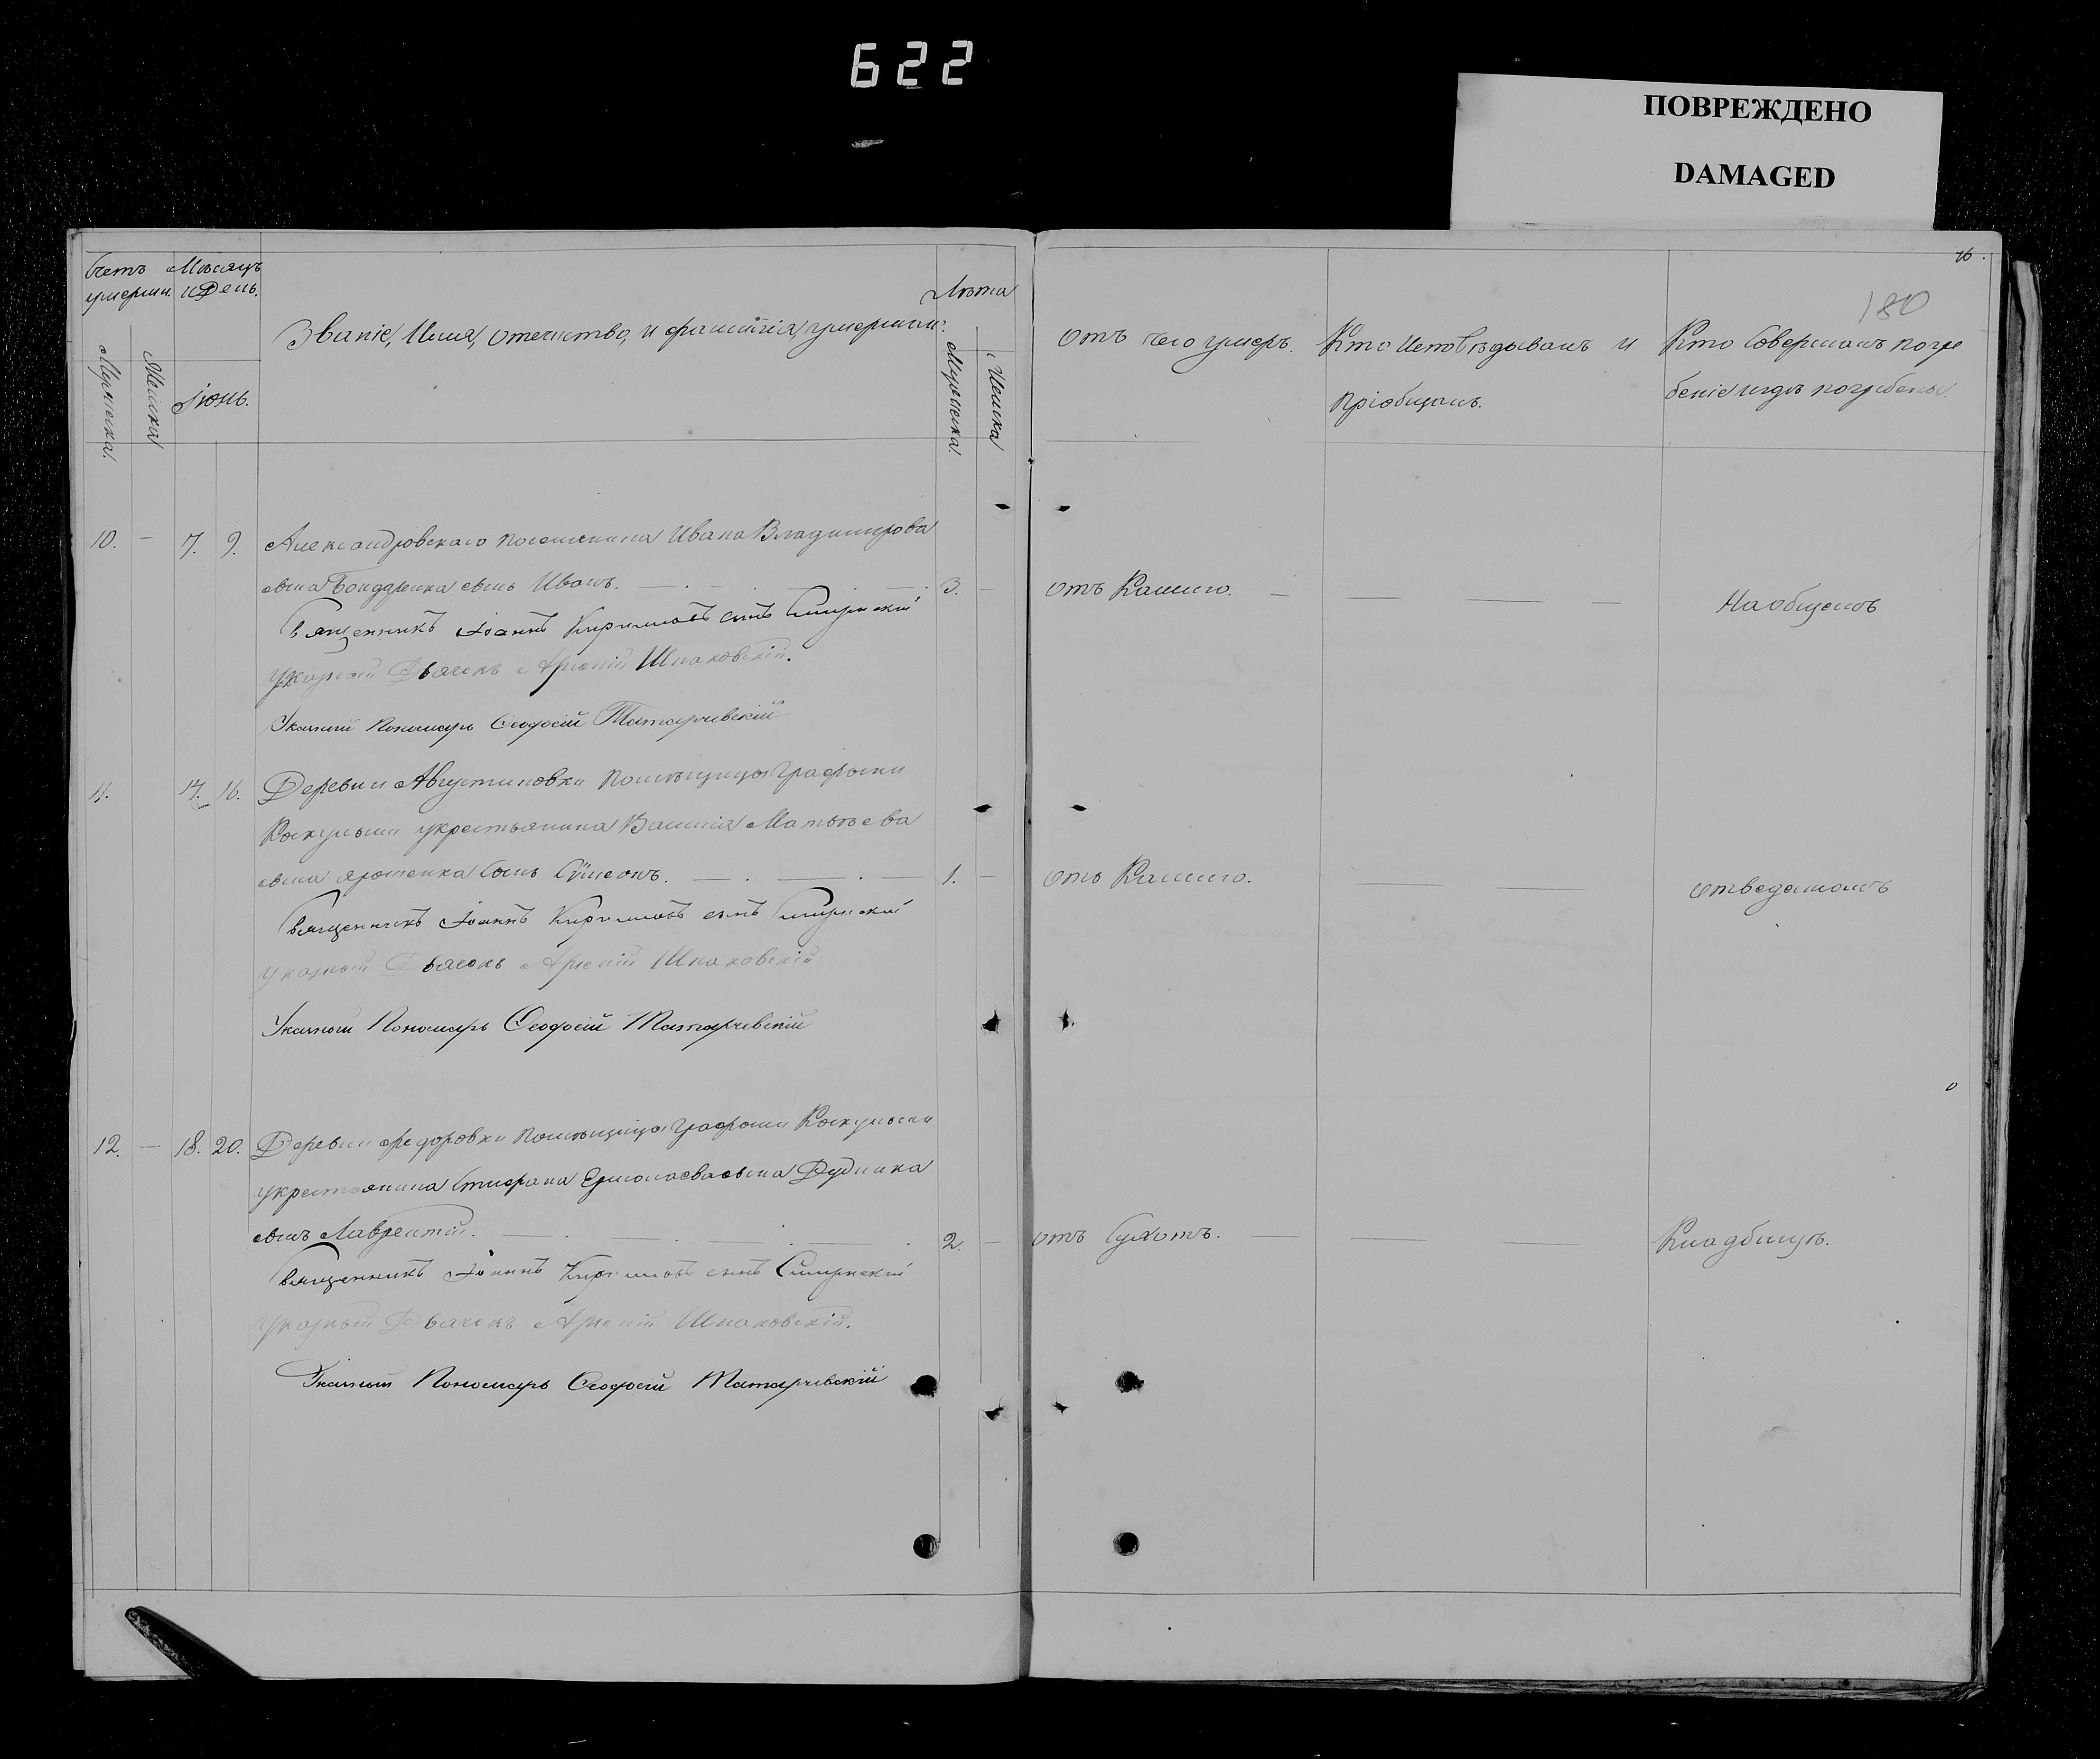 622
ПОВРЕЖДЕНО
DAMAGED
16.
180
Счетъ умерши.
Мѣсяцъ и День.
Званіе, Имя, отечество, и фамилія, умерши.
Лѣта
Мужеска.
Женска
Іюнь.
Мужеска.
Женска
Отъ чего умеръ.
Кто Исповѣдывалъ и
пріобщалъ.
Кто Совершалъ погре
беніе и гдѣ погребены.
10. — 7. 9. Александровскаго поселянина Ивана Владимирова
сына Бондаренка сынъ Иванъ. 3. —
отъ Кашлю.
На общемъ
Священникъ Іоаннъ Кирилловъ сынъ Смирнскій
Указный Дьячокъ Арсеній Шпаковскій.
Указный Пономарь Ѳеодосій Татарчевскій
11. 14. 16. Деревни Августиновки помѣщицы Графини
крестьянина Василія Матвѣева
сына Ярошенка сынъ Сѷмеонъ. 1. —
отъ Кашлю.
Священникъ Іоаннъ Кирилловъ сынъ Смирнскій
Указный Дьячокъ Арсеній Шпаковскій
Указный Пономарь Ѳеодосій Татарчевскій
12. — 18. 20. Деревни Федоровки помѣщицы Графини
крестьянина Стефана Ермолаева сына Дудника
сынъ Лаврентій. 2. —
отъ Сухотъ.
Кладбищѣ.
Священникъ Іоаннъ Кирилловъ сынъ Смирнскій
Указный Дьячокъ Арсеній Шпаковскій.
Указный Пономарь Ѳеодосій Татарчевскій